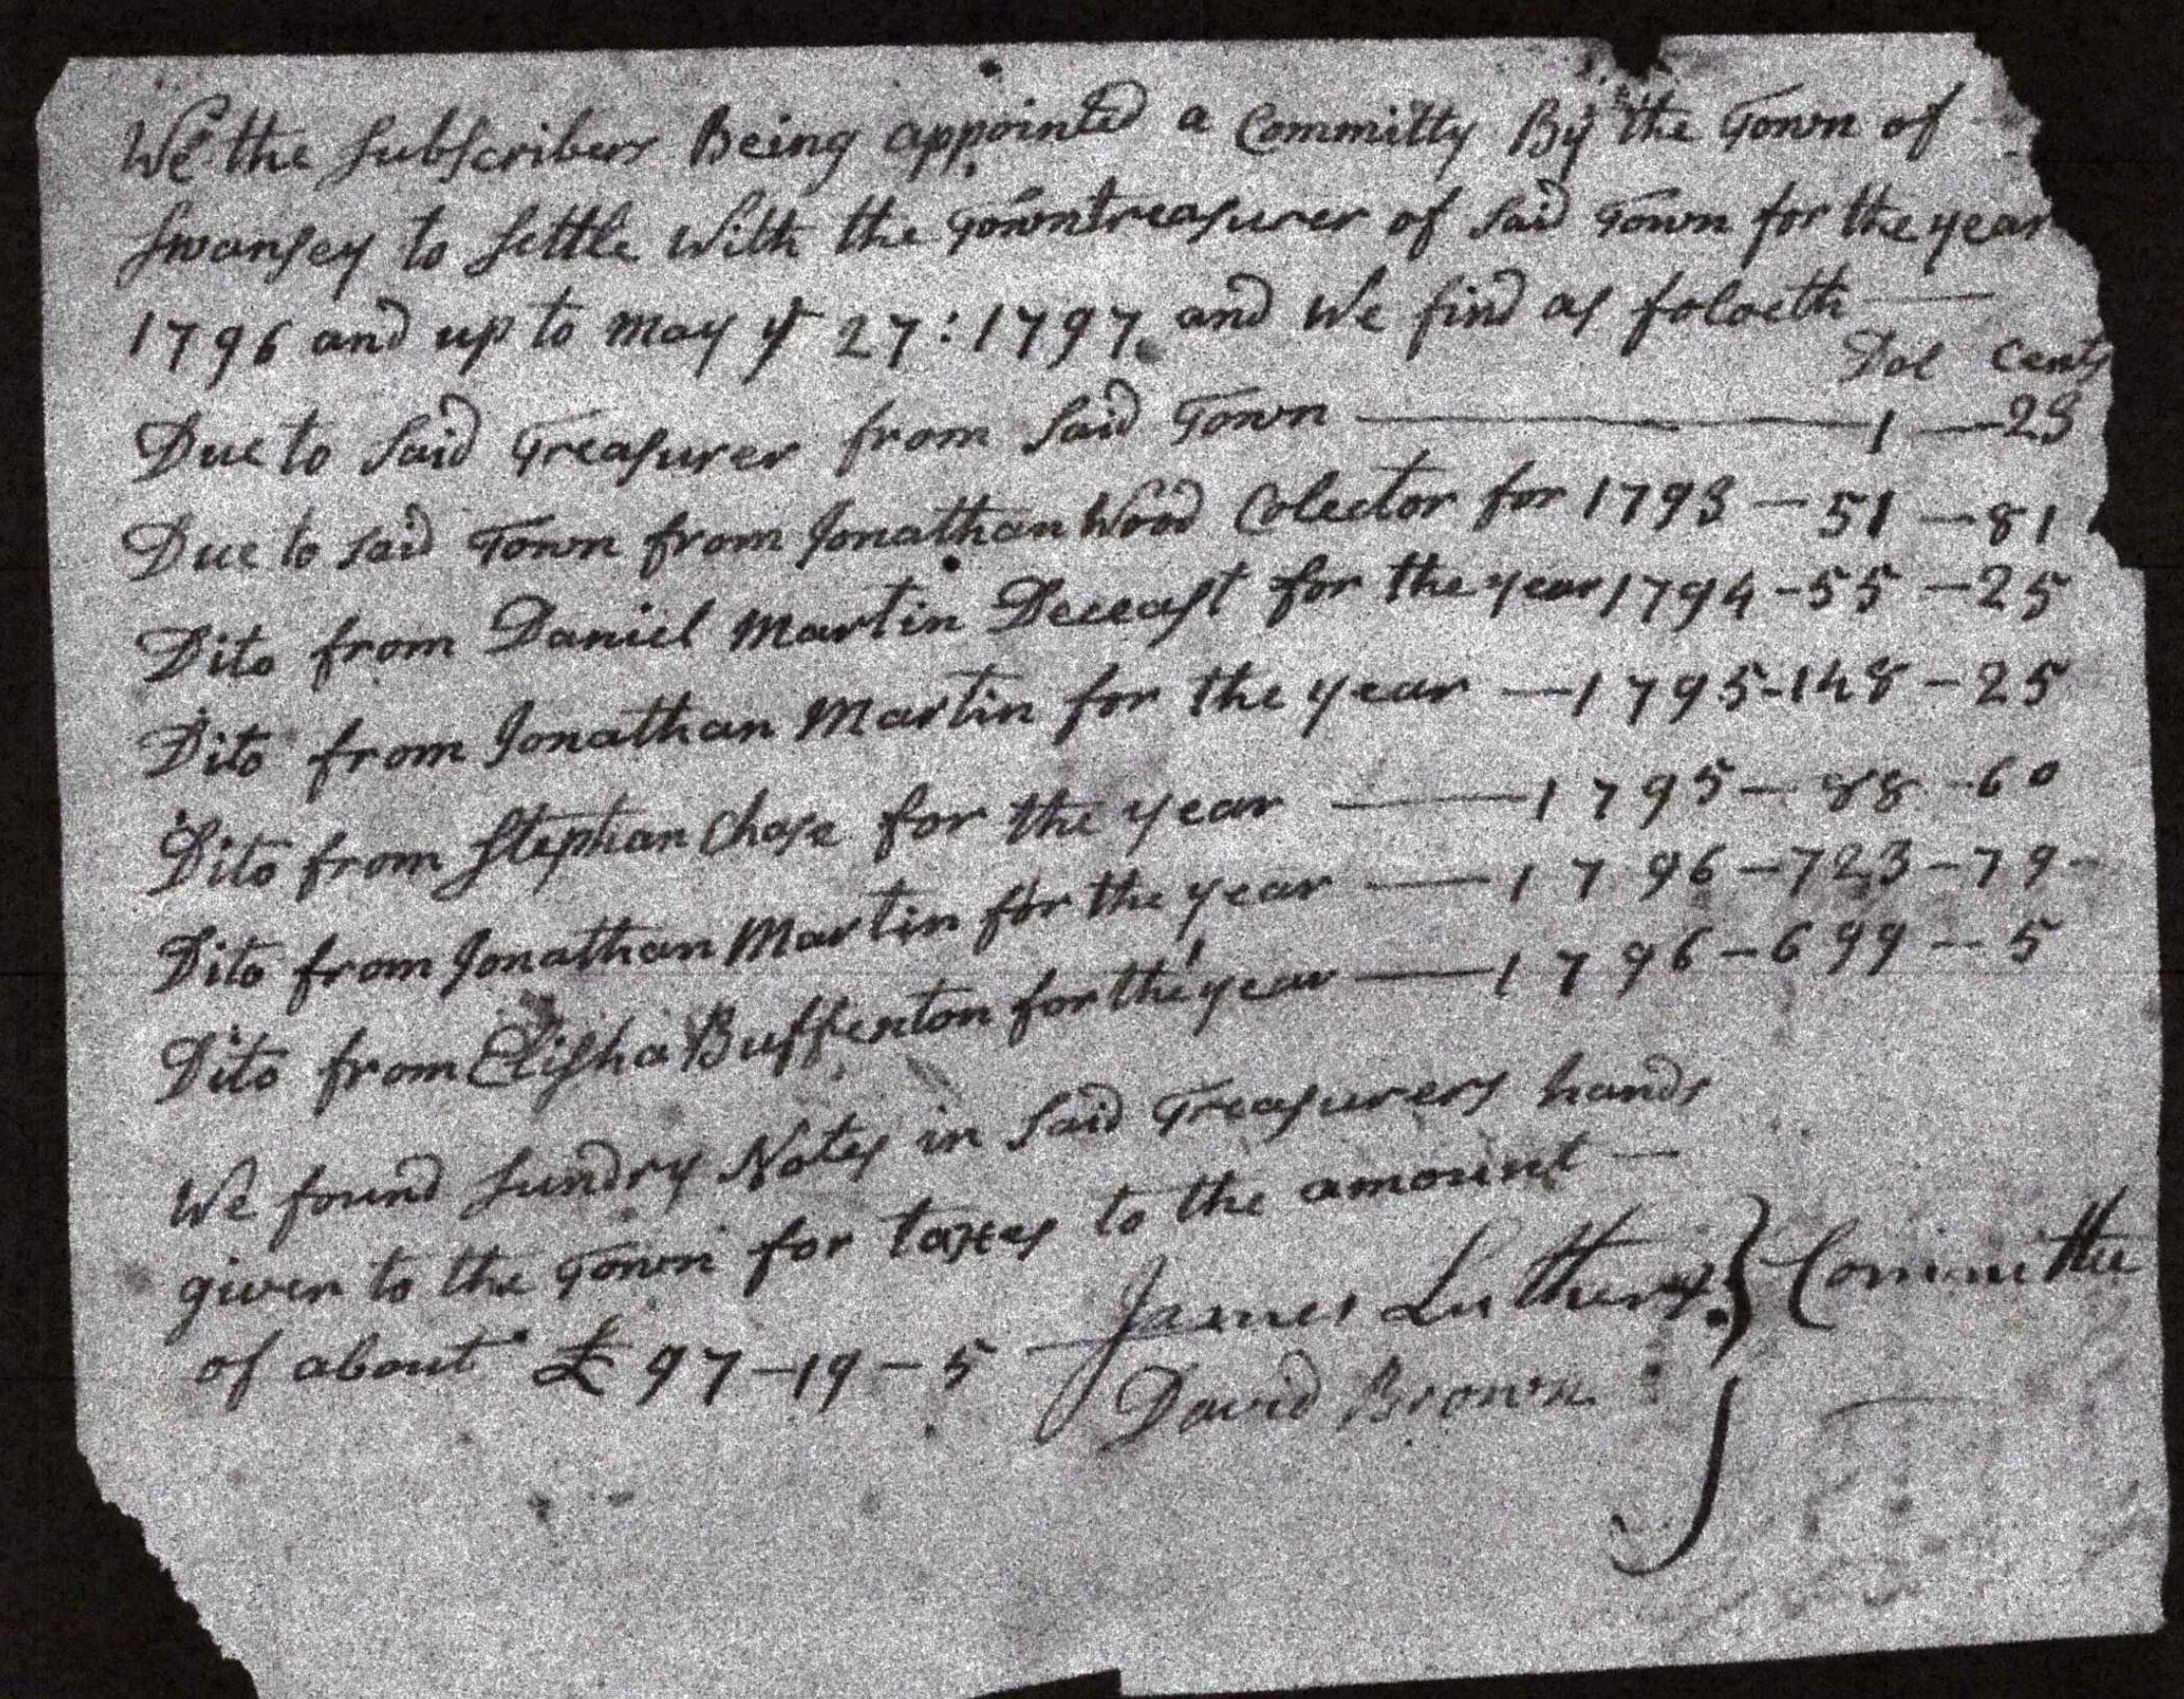 We the Subscribers Being appointed a Committy By the Town of
Swansey to Settle With the Towntreasurer of Said Town for the year
1796 and up to may ye 27: 1797 and We find as foloeth
Dol Cents
Due to Said Treasurer from Said Town — 1 — 23
Due to said Town from Jonathan Wood Colector for 1793 — 51 — 81
Dito from Daniel Martin Deceast for the year 1794 - 55 - 25
Dito from Jonathan Martin for the year — 1795 - 148 - 25
Dito from Stephan Chase for the year — 1795 — 88 - 60
Dito from Jonathan Martin for the year — 1796 - 723 - 79 -
Dito from Elisha Buffenton for the year — 1796 - 699 - 5
We found Sundry Notes in Said Treasurers hands
given to the Town for taxes to the amount —
of about £ 97 - 19 - 5
James Luther } Committee
David Brown